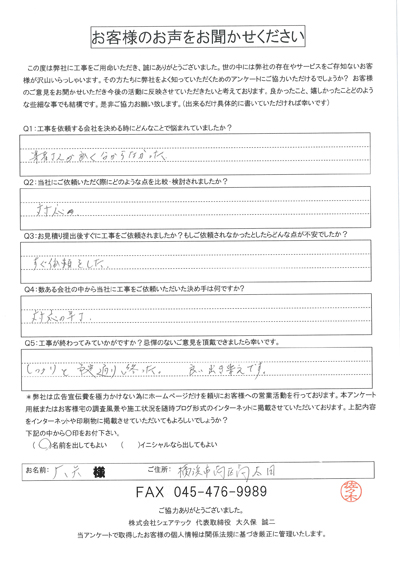 お客様のお声をお聞かせください
この度は弊社に工事をご用命いただき、誠にありがとうございました。世の中には弊社の存在やサービスをご存知ないお客
様が沢山いらっしゃいます。その方たちに弊社をよく知っていただくためのアンケートにご協力いただけるでしょうか? お客様
のご意見をお聞かせいただき今後の活動に反映させていただきたいと考えております。良かったこと、嬉しかったことどのよう
な些細な事でも結構です。是非ご協力お願い致します。(出来るだけ具体的に書いていただければ幸いです)
Q1:工事を依頼する会社を決める時にどんなことで悩まれていましたか?
業者さんが
Q2:当社にご依頼いただく際にどのような点を比較・検討されましたか?
対応
Q3:お見積り提出後すぐに工事をご依頼されましたか?もしご依頼されなかったとしたらどんな点が不安でしたか?
すぐ依頼をした。
Q4:数ある会社の中から当社に工事をご依頼いただいた決め手は何ですか?
対応の
Q5:工事が終わってみていかがですか?忌憚のないご意見を頂戴できましたら幸いです。
終った。 良い出き栄えです。
*弊社は広告宣伝費を極力かけない為にホームページだけを頼りにお客様への営業活動を行っております。本アンケート
用紙またはお客様宅の調査風景や施工状況を随時ブログ形式のインターネットに掲載させていただいております。上記内容
をインターネットや印刷物に掲載させていただいてもよろしいでしょうか?
下記の中から○印をお付け下さい。
(○)名前を出してもよい ( )イニシャルなら出してもよい
お名前: 様 ご住所: 横浜市
FAX 045-476-9989
ご協力ありがとうございました。
株式会社シェアテック 代表取締役 大久保 誠二
当アンケートで取得したお客様の個人情報は関係法規に基づき厳正に管理いたします。